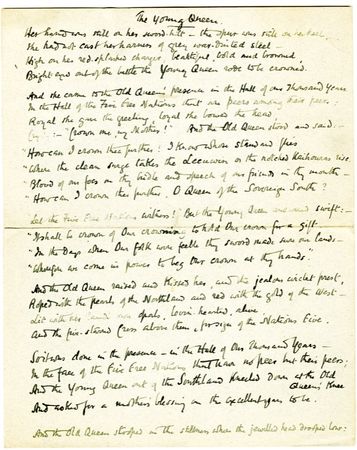 The Young Queen.
Her hand was still on her sword hilt — the spur was still on her heel
She had not cast her harness of grey war-dinted steel —
High on her red-splashed charger, beautiful, bold and browned,
Bright-eyed out of the battle the Young Queen rode to be crowned.
And she came to the Old Queen's presence in the Hall of our Thousand Years
In the Hall of the Five Free Nations that are peers among their peers:
Royal she gave the greeting, loyal she bowed the head,
Crying:— "Crown me, my Mother!" And the Old Queen stood and said:—
"How can I crown thee further? I know whose standard flies
"Where the clean surge takes the Leeuwin or the notched Kaikouras rise.
"Blood of our foes on thy bridle and speech of our friends in thy mouth —
"How can I crown thee further, O Queen of the Sovereign South?
Let the Five Free Nations witness!" But the Young Queen answered swift:—
"It shall be crown of Our crowning to hold Our crown for a gift.
"In the Days when Our folk were feeble thy sword made sure our lands —
"Wherefore we come in power to beg Our crown at thy hands."
And the Old Queen raised and kissed her, and the jealous circlet prest,
Roped with the pearls of the Northland and red with the gold of the West —
Lit with her land's own opals, levin-hearted, alive,
And the five-starred Cross above them, for sign of the Nations Five
So it was done in the presence — in the Hall of Our Thousand Years —
In the face of the Five Free Nations that have no peer but their peers;
And the Young Queen out of the Southland kneeled down at the Old
Queen's Knee
And asked for a mother's blessing on the excellent years to be.
And the Old Queen stooped in the stillness where the jewelled head drooped low: